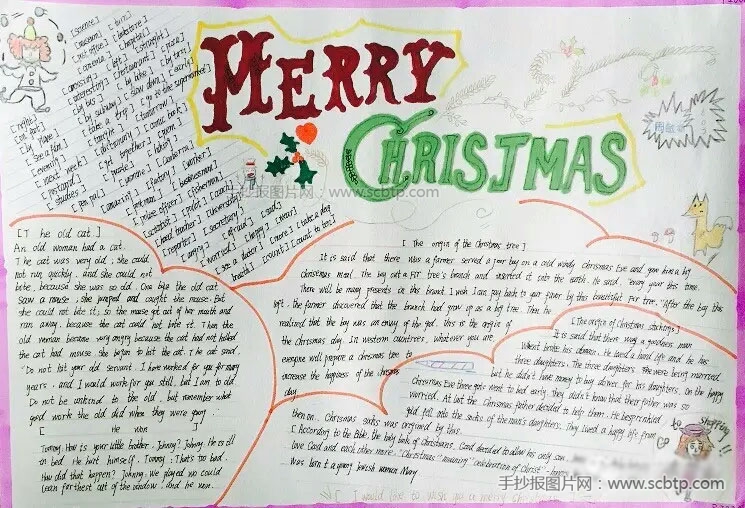 MERRY
CHRISTMAS
手抄报图片网：www.scbtp.com
[science] [turn]
[museum] [bookstore]
[post office] [hospital]
[cinema] [left] [straight]
[crossing] [right] [pizza]
[interesting] [restaurant]
[by bus] [by bike] [by train]
[by subway] [slow down] [early]
[night] [take a trip] [go to the supermarket]
[by plane] [tonight] [tomorrow]
[see a film] [dictionary] [comic book]
[evening] [get together] [poem]
[next week] [puzzle] [hiking]
[studies] [pen pal] [jasmine] [Canberra]
[amazing] [factory] [worker]
[postman] [businessman]
[police officer] [fisherman]
[scientist] [pilot] [coach]
[head teacher] [university]
[reporter] [secretary]
[angry] [afraid] [sad]
[worried] [happy] [wear]
[see a doctor] [more] [take a deep
breath] [count] [count to ten]
[The old cat.]
An old woman had a cat.
The cat was very old; she could
not run quickly, and she could not
bite, because she was so old. One day the old cat
saw a mouse; she jumped and caught the mouse. But
she could not bite it; so the mouse got out of her mouth and
ran away, because the cat could not bite it. Then the
old woman became very angry because the cat had not killed
the cat had mouse. She began to hit the cat. The cat said,
"Do not hit your old servant. I have worked for you for many
years, and I would work for you still, but I am to old.
Do not be unkind to the old, but remember what
good work the old did when they were young."
[He won]
Tommy: How is your little brother, Johnny? Johnny: He is ill
in bed. He hurt himself. Tommy: That's too bad.
How did that happen? Johnny: We played who could
lean furthest out of the window, and he won.
[The origin of the Christmas tree]
It is said that there was a farmer served a poor boy on a cold windy chrismas Eve and gave him a big
Christmas meal. The boy cut a FIT tree's branch and inserted it into the earth. He said "every year this time,
There will be many presents in this branch. I wish I can pay back to your favor by this beautiful Fir tree." After the boy this
left, the farmer discovered that the branch had grew up as a big tree. Then he
realized that the boy was an envoy of the god. This is the origin of
the Christmas day. In western countries, whatever you are
everyone will prepare a christmas tree to
increase the happiness of the chrismas
day.
[The origin of Christmas stockings]
It is said that there was a goodness man
Whent broke his domain. He lived a hard life and he has
three daughters. The three daughters were being married
but he didn't have money to buy dower for his daughters. On the happy
Christmas Eve three gols went to bed early, they didn't know that their father was so
worried. At last the Christmas father decided to help them. He besprinkled
gold fell into the socks of the man's daughters. They lived a happy life from
then on.. Christmas socks was origined by this.
[According to the Bible, the holy book of Christians, God decided to allow his only son
love God and each other more. "Christmas" meaning "celebration of Christ"
was born t a young Jewish woman Mary
Go
shopping
!!
手抄报图片网：www.scbtp.com